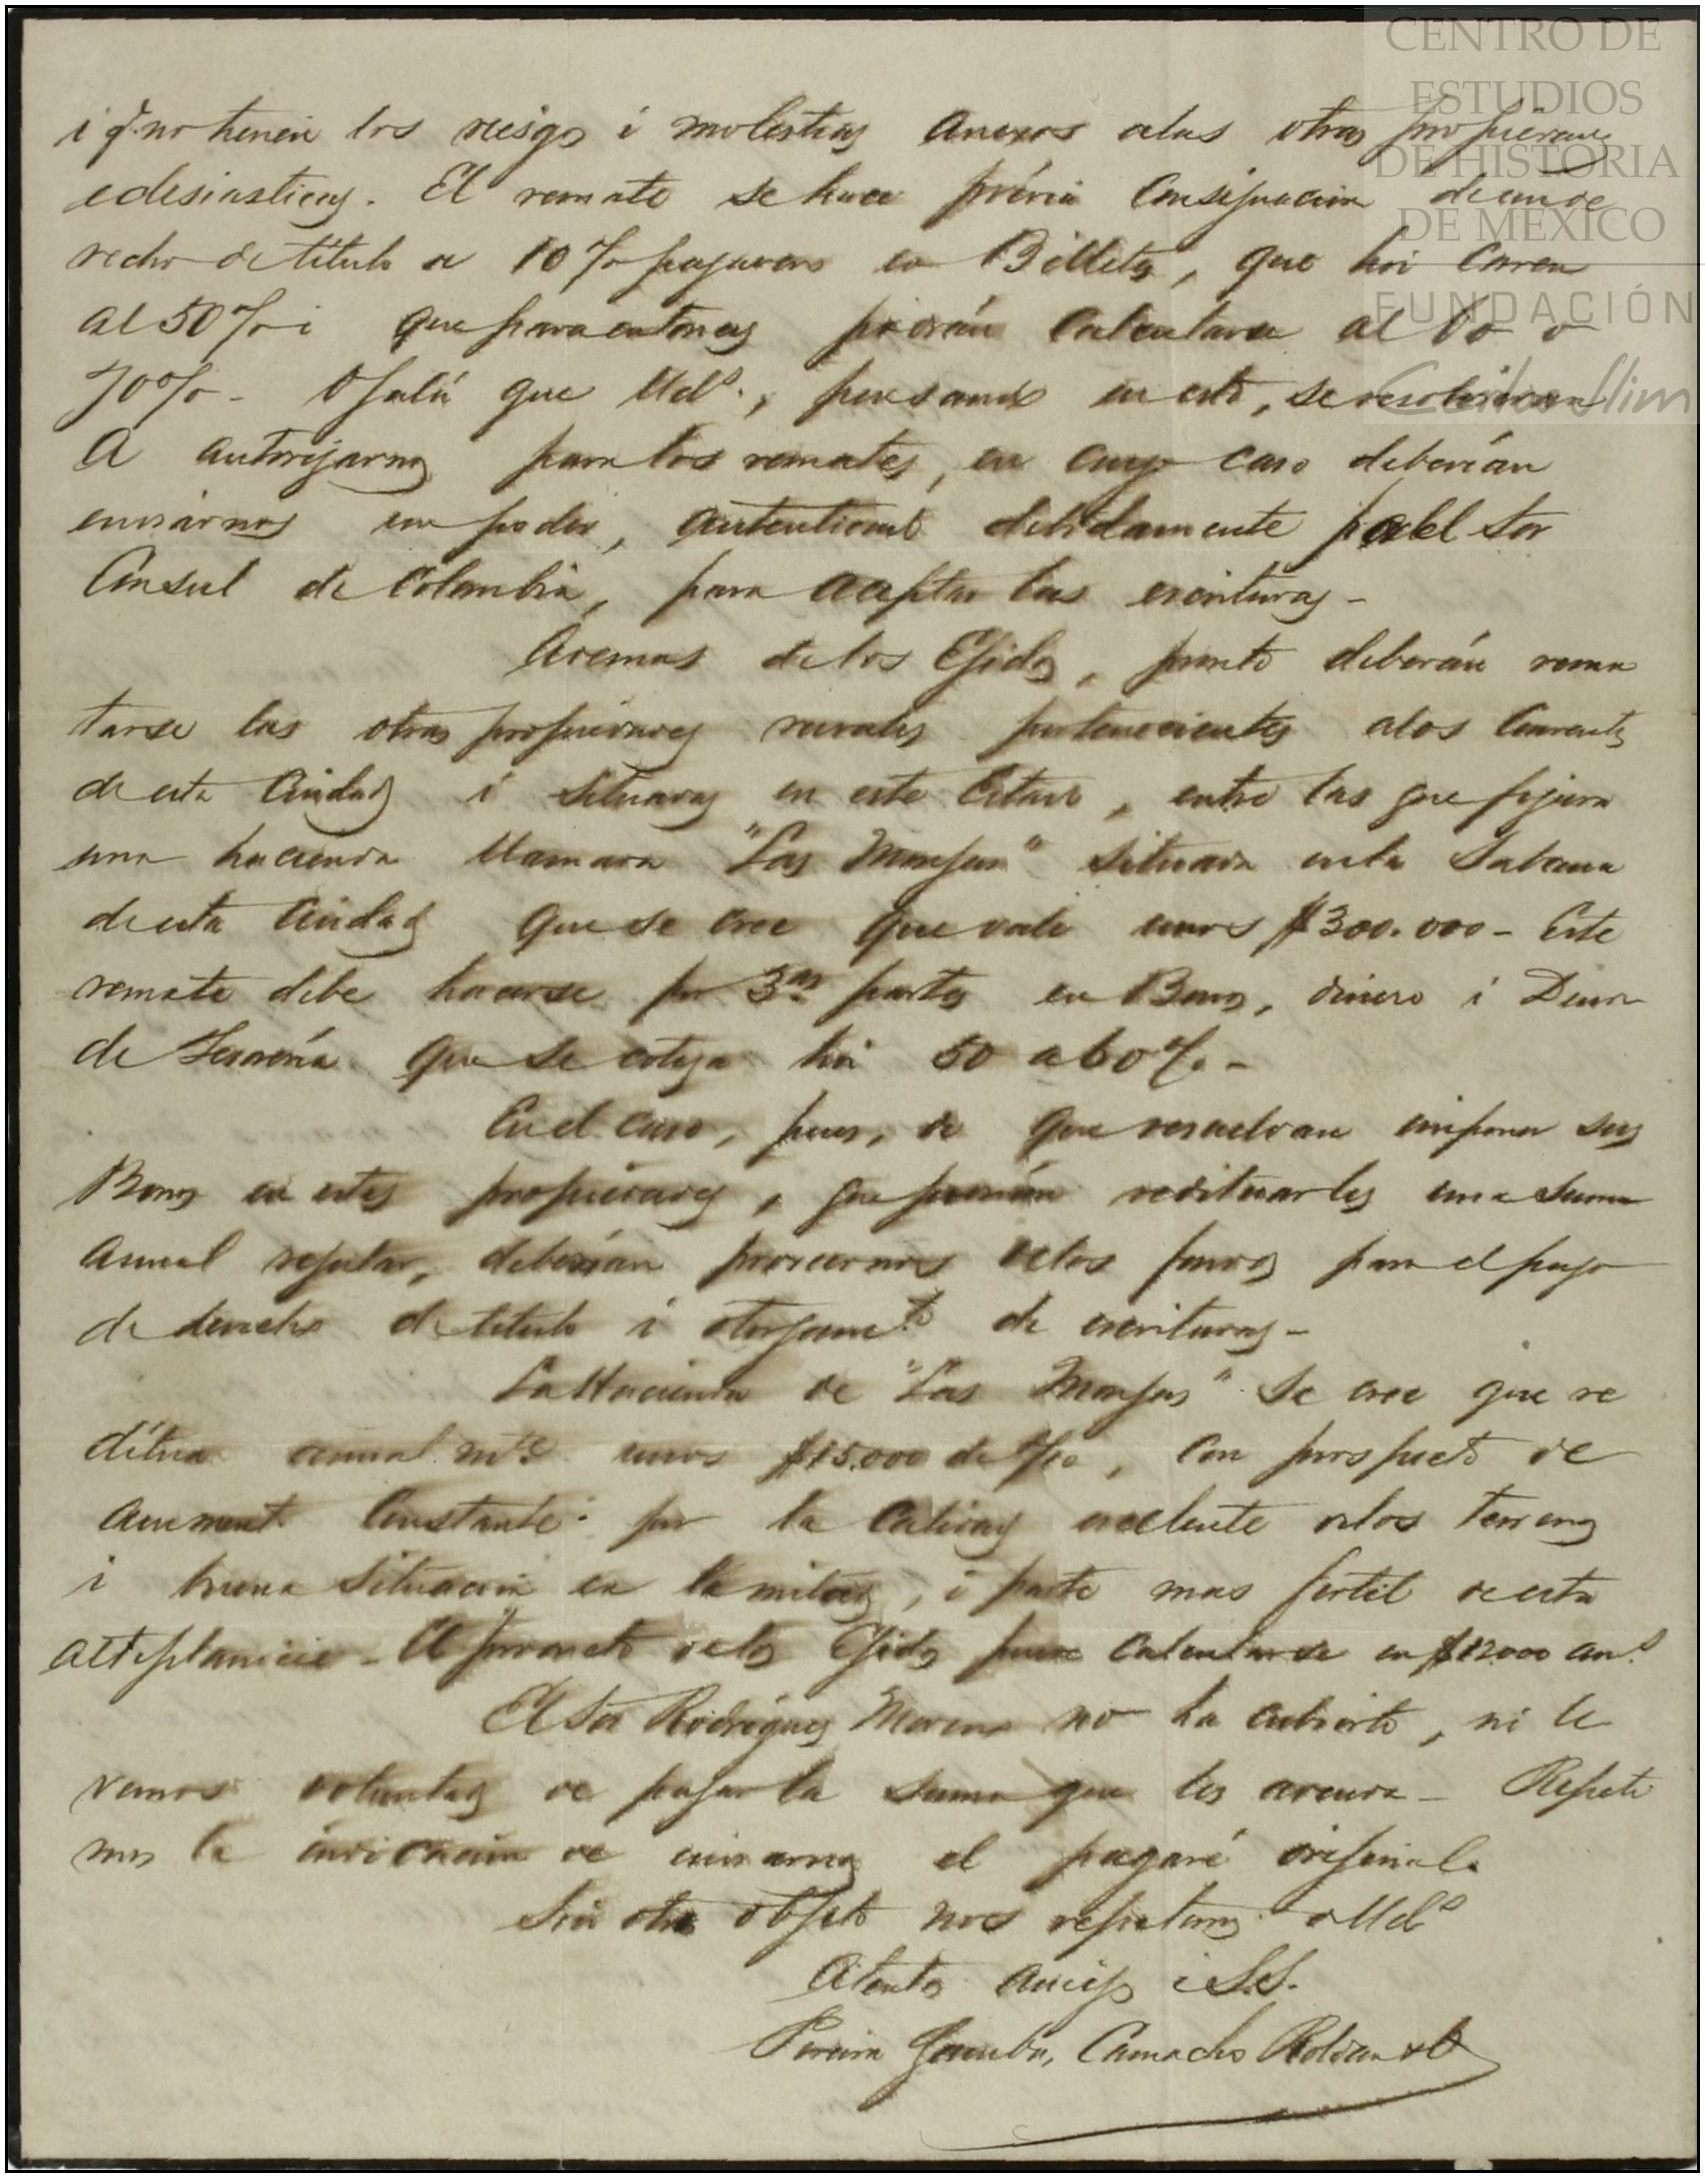 CENTRO DE
ESTUDIOS
DE HISTORIA
DE MÉXICO
FUNDACIÓN
Carlos Slim
i q. no tienen los riesgos i molestias anexos a las otras propiedades
eclesiasticas. El remate se hace prévia consignacion de un de
recho de título de 10% pagadero en Billetes, que hoi corren
al 50% i que para entonces podrán calcularse al 60 o
70%- Ojalá que Uds., pensando en esto, se resolvieran
a autorizarnos para los remates, en cuyo caso deberían
enviarnos un poder, autenticado debidamente por el Sor
Consul de Colombia, para aceptar las escrituras-
Ademas de los Ejidos, pronto deberán rema
tarse las otras propiedades rurales pertenecientes a los Conventos
de esta Ciudad i situadas en este Estado, entre las que figura
una hacienda llamada "Las Monjas" situada en la Sabana
de esta Ciudad que se cree que vale unos $300.000- Este
remate debe hacerse por 3as partes en Bonos, dinero i Deuda
de Tesorería que se cotiza hoi 50 a 60%-
En el caso, pues, de que resuelvan imponer sus
Bonos en estas propiedades, que podrían redituarles una suma
anual regular, deberían proveernos de los fondos para el pago
de derecho de título i otorgamto de escrituras-
La Hacienda de "Las Monjas" se cree que re
ditúa anualmte unos $15.000 de, con prospecto de
aumento constante por la calidad excelente de los terrenos
i buena situacion en la mitad, i parte mas fertil de esta
altiplanicie- El producto de los Ejidos puede calcularse en $12.000 ans.
El Sor Rodriguez Moreno no ha cubierto, ni le
vemos voluntad de pagar la suma que les adeuda- Repeti
mos la indicacion de enviarnos el pagaré original.
Sin otro objeto nos repetimos de Uds
Atentos amigos i S.S.
Pereira Gamba, Camacho Roldan & Ca